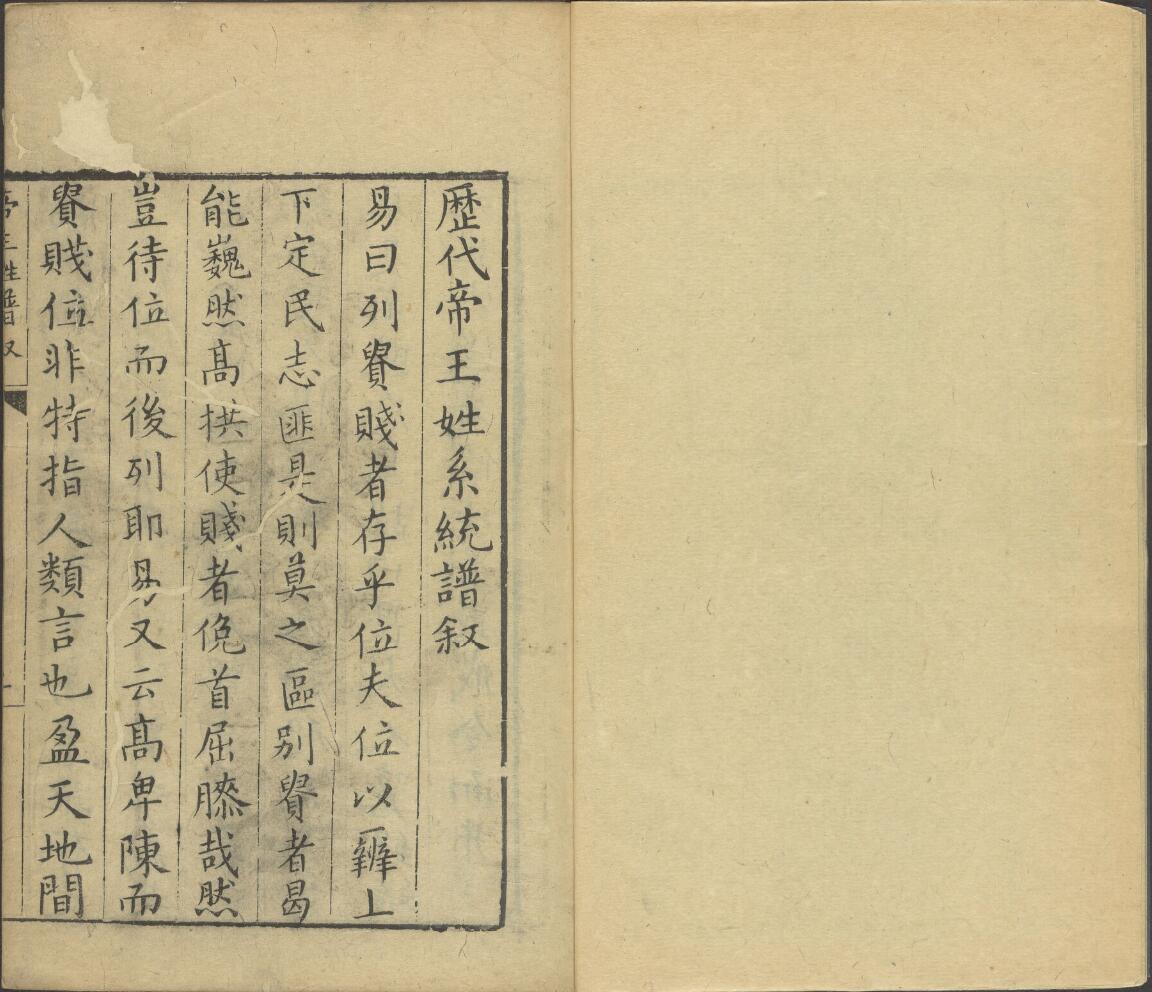 歷代帝王姓系統譜叙
易曰列貴賤者存乎位夫位以辨上
下定民志匪是則莫之區別貴者曷
能巍然高拱使賤者俛首屈膝哉然
豈待位而後列耶易又云高卑陳而
貴賤位非特指人類言也盈天地間
帝王姓譜叙
一